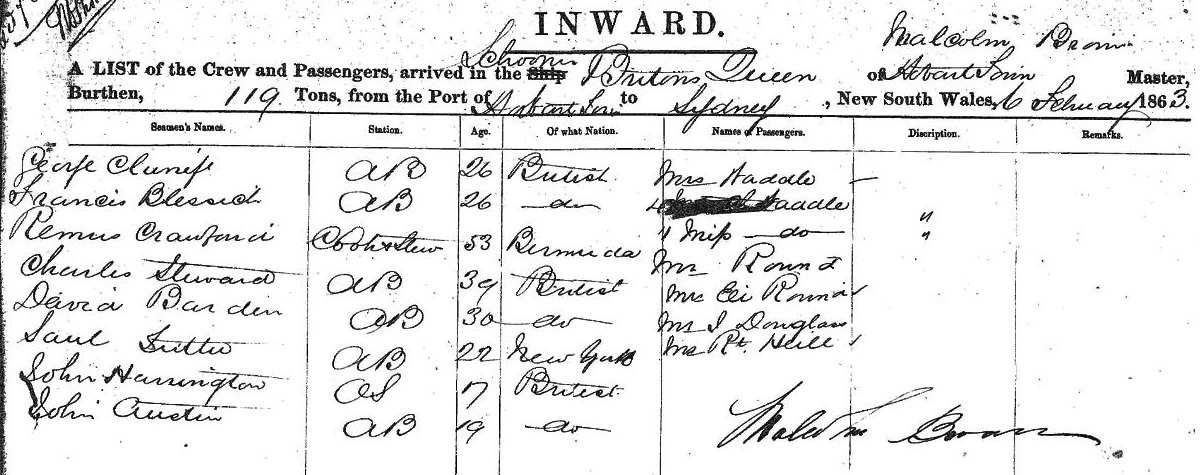 INWARD.
Malcolm Brown
Schooner
A LIST of the Crew and Passengers, arrived in the Ship Britons Queen of Hobart Town Master,
Burthen, 119 Tons, from the Port of Hobart Town to Sydney, New South Wales, 6 February 1863.
Seamen's Names. Station. Age. Of what Nation. Names of Passengers. Discription. Remarks.
George AB 26 British Mrs Haddle —
Francis Blessich AB 26 — do — Haddle "
Remus Crawford Cook & Stew 53 Bermuda " Miss — do — "
Charles Steward AB 39 British Mr Round
David Barden AB 30 — do Mr Eli Round
Saul AB 22 New York Mr J Douglass
John Harrington OS 17 British Mr Rt. Hill
John Austin AB 19 — do
Malcolm Brown